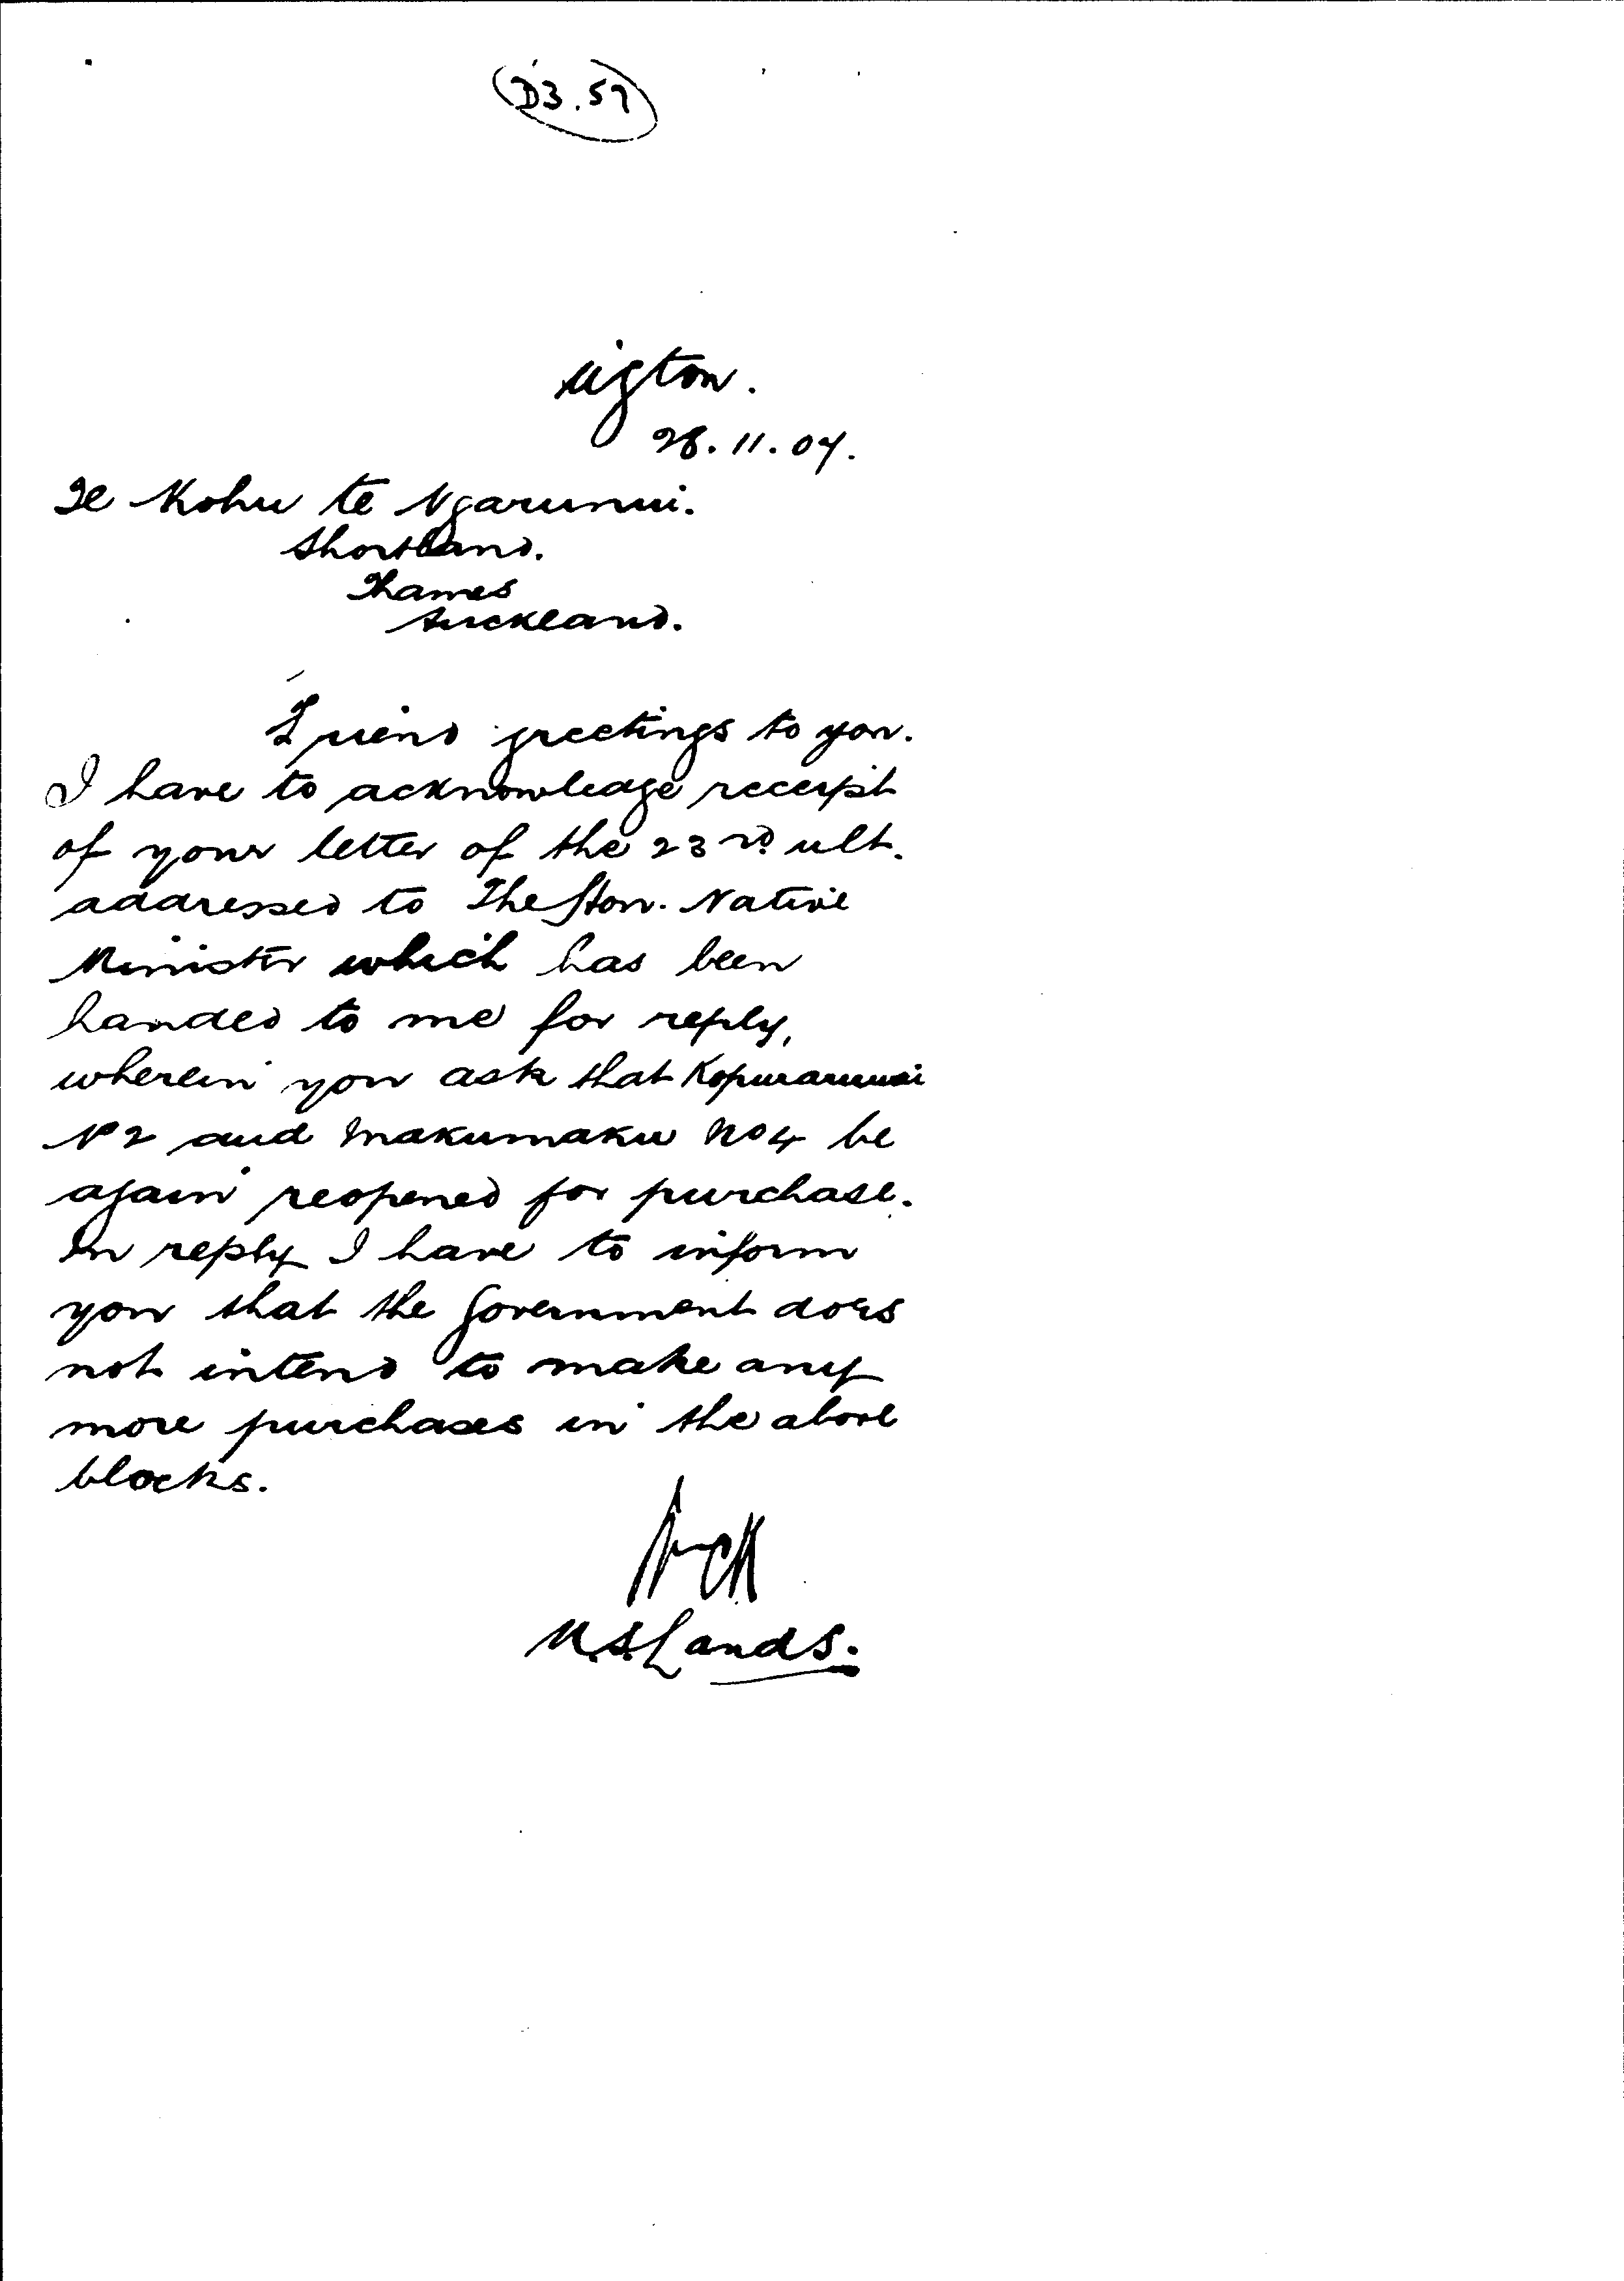 D3.59
ugton.
28.11.07.
Te Kohu te Ngarunui.
Shortland.
Thames
Auckland.
Friend greetings to you.
I have to acknowledge receipt
of your letter of the 23rd ult.
addressed to The Hon. Native
Minister which has been
handed to me for reply,
wherein you ask that Kopuraruwai
No 2 and Makumaku No 4 be
again reopened for purchase.
In reply I have to inform
you that the Government does
not intend to make any
more purchases in the above
blocks.
U.S. Lands.